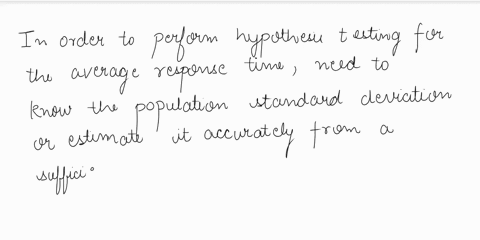 In order to perform hypothesis testing for
the average response time, need to
know the population standard deviation
or estimate it accurately from a
suffici